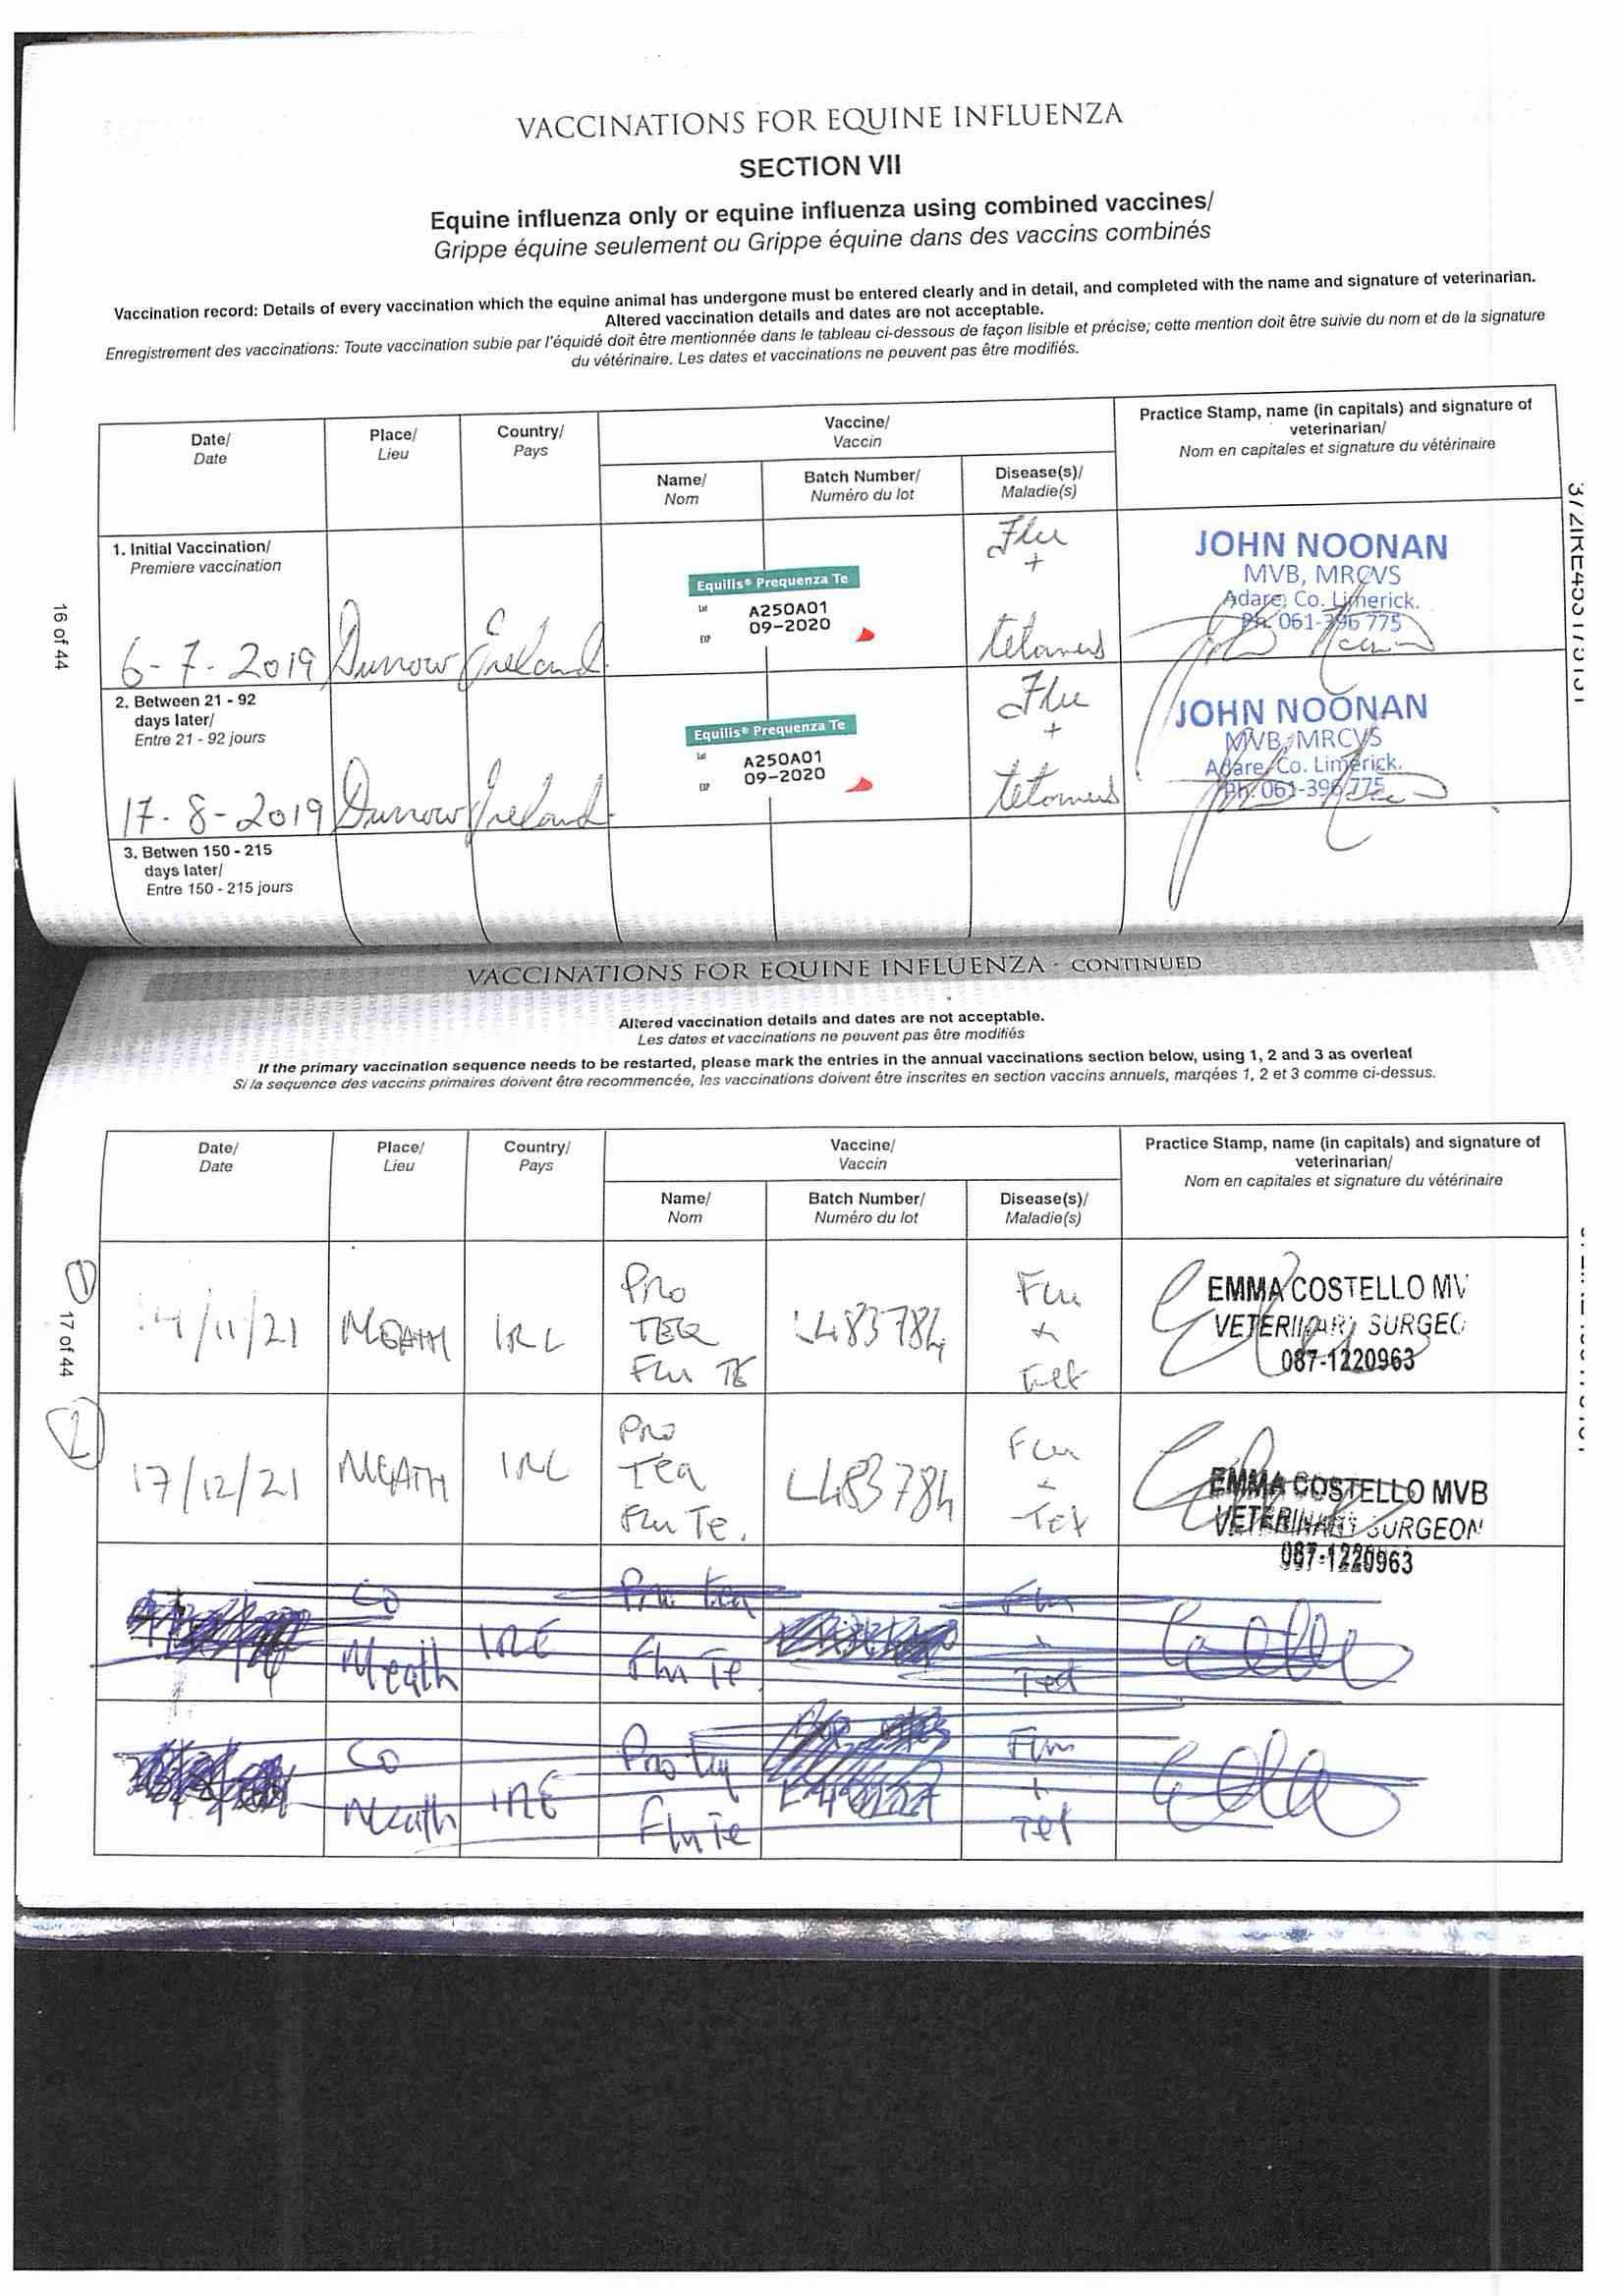 VACCINATIONS FOR EQUINE INFLUENZA
SECTION VII
Equine influenza only or equine influenza using combined vaccines/
Grippe équine seulement ou Grippe équine dans des vaccins combinés
Vaccination record: Details of every vaccination which the equine animal has undergone must be entered clearly and in detail, and completed with the name and signature of veterinarian.
Altered vaccination details and dates are not acceptable.
Enregistrement des vaccinations: Toute vaccination subie par l'équidé doit être mentionnée dans le tableau ci-dessous de façon lisible et précise; cette mention doit être suivie du nom et de la signature
du vétérinaire. Les dates et vaccinations ne peuvent pas être modifiés.
Date/
Date
Place/
Lieu
Country/
Pays
Vaccine/
Vaccin
Name/
Nom
Batch Number/
Numéro du lot
Disease(s)/
Maladie(s)
Practice Stamp, name (in capitals) and signature of
veterinarian/
Nom en capitales et signature du vétérinaire
16 of 44
1. Initial Vaccination/
Premiere vaccination
6-7-2019
Durrow
Ireland
Equilis® Prequenza Te
Lot A250A01
EXP 09-2020
Flu
+
tetanus
JOHN NOONAN
MVB, MRCVS
Adare, Co. Limerick.
Ph. 061-396 775
2. Between 21 - 92
days later/
Entre 21 - 92 jours
17-8-2019
Durrow
Ireland
Equilis® Prequenza Te
Lot A250A01
EXP 09-2020
Flu
+
tetanus
JOHN NOONAN
MVB, MRCVS
Adare, Co. Limerick.
Ph. 061-396 775
3. Betwen 150 - 215
days later/
Entre 150 - 215 jours
VACCINATIONS FOR EQUINE INFLUENZA - CONTINUED
Altered vaccination details and dates are not acceptable.
Les dates et vaccinations ne peuvent pas être modifiés
If the primary vaccination sequence needs to be restarted, please mark the entries in the annual vaccinations section below, using 1, 2 and 3 as overleaf
Si la sequence des vaccins primaires doivent être recommencée, les vaccinations doivent être inscrites en section vaccins annuels, marqées 1, 2 et 3 comme ci-dessus.
Date/
Date
Place/
Lieu
Country/
Pays
Vaccine/
Vaccin
Name/
Nom
Batch Number/
Numéro du lot
Disease(s)/
Maladie(s)
Practice Stamp, name (in capitals) and signature of
veterinarian/
Nom en capitales et signature du vétérinaire
1
17 of 44
4/11/21
MEATH
IRL
Pro
TEQ
Flu TE
L483784
Flu
+
Tet
EMMA COSTELLO MV
VETERINARY SURGEO
087-1220963
2
17/12/21
MEATH
IRL
Pro
Teq
Flu Te.
L483784
Flu
+
Tet
EMMA COSTELLO MVB
VETERINARY SURGEON
087-1220963
Co
Meath
IRE
Pro teq
Flu Te
Flu
+
Tet
Co
Meath
IRE
Pro teq
Flu Te
Flu
+
Tet